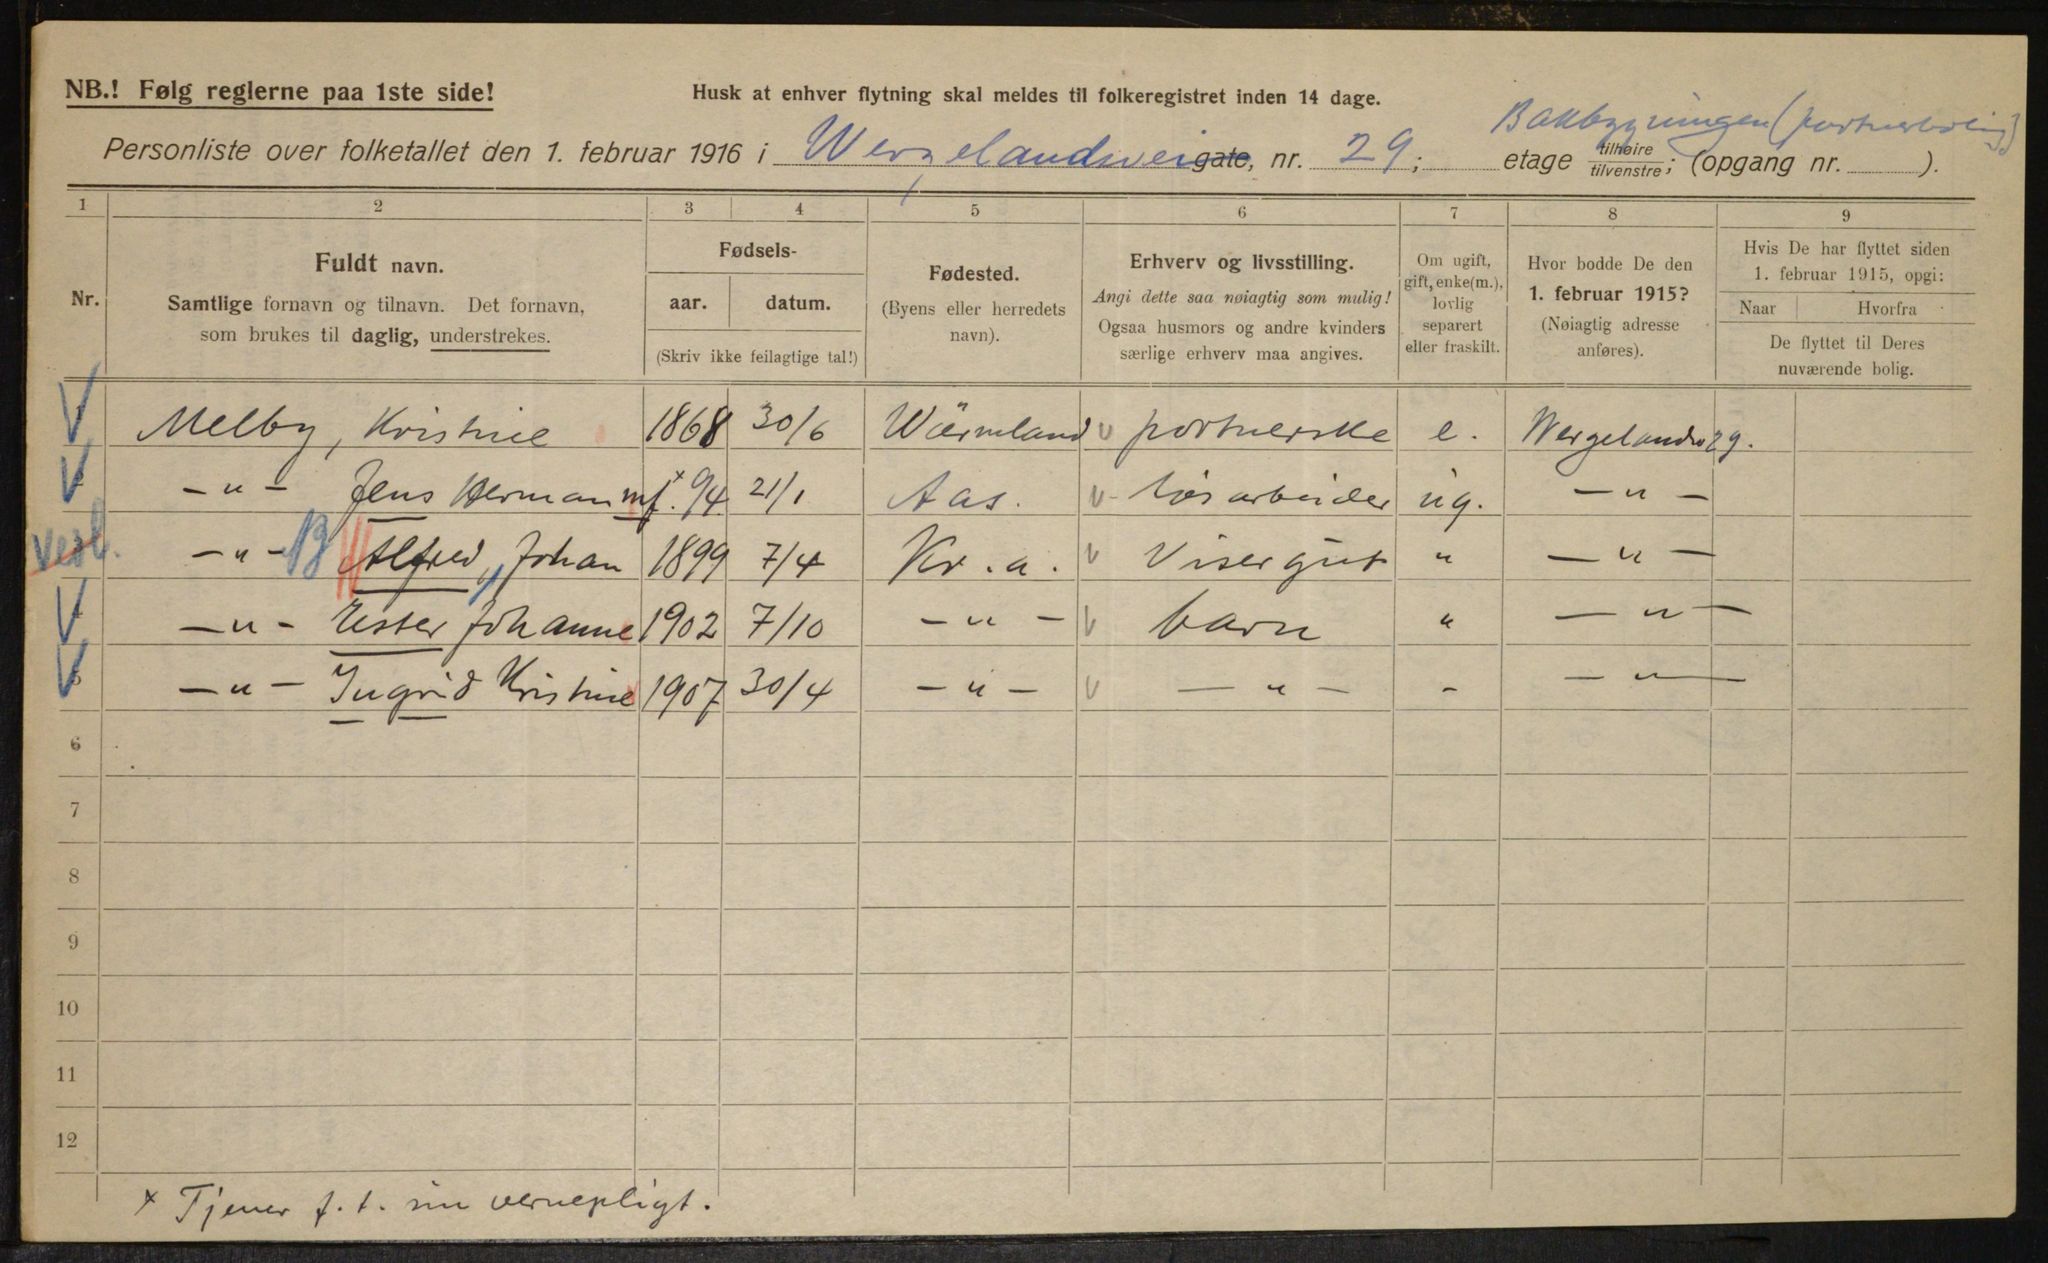 NB.! Følg reglerne paa 1ste side!
Husk at enhver flytning skal meldes til folkeregistret inden 14 dage.
Bakbygningen (portnerbolig)
Personliste over folketallet den 1. februar 1916 i Wergelandsvei gate, nr. 29; etage tilhøire/tilvenstre; (opgang nr. ).
1 2 3 4 5 6 7 8 9
Nr.
Fuldt navn.
Samtlige fornavn og tilnavn. Det fornavn,
som brukes til daglig, understrekes.
Fødsels-
aar. datum.
(Skriv ikke feilagtige tal!)
Fødested.
(Byens eller herredets
navn).
Erhverv og livsstilling.
Angi dette saa nøiagtig som mulig!
Ogsaa husmors og andre kvinders
særlige erhverv maa angives.
Om ugift,
gift, enke(m.),
lovlig
separert
eller fraskilt.
Hvor bodde De den
1. februar 1915?
(Nøiagtig adresse
anføres).
Hvis De har flyttet siden
1. februar 1915, opgi:
Naar Hvorfra
De flyttet til Deres
nuværende bolig.
V Melby, Kristine 1868 30/6 Wärmland v portnerske e. Wergelandsv 29.
V -"- Jens Herman mf. x 94 21/1 Aas. v løsarbeider ug. -"-
-"- B Alfred, Johan 1899 7/4 Kr.a. v Visergut " -"-
V -"- Ester Johanne 1902 7/10 -"- v barn " -"-
V 5 -"- Ingrid Kristine 1907 30/4 -"- v -"- - -"-
6
7
8
9
10
11
12
x Tjener f. t. sin vernepligt.